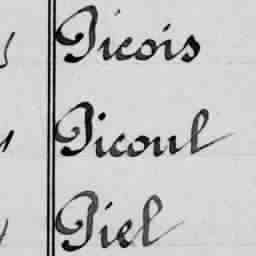 Picois
Picoul
Piel